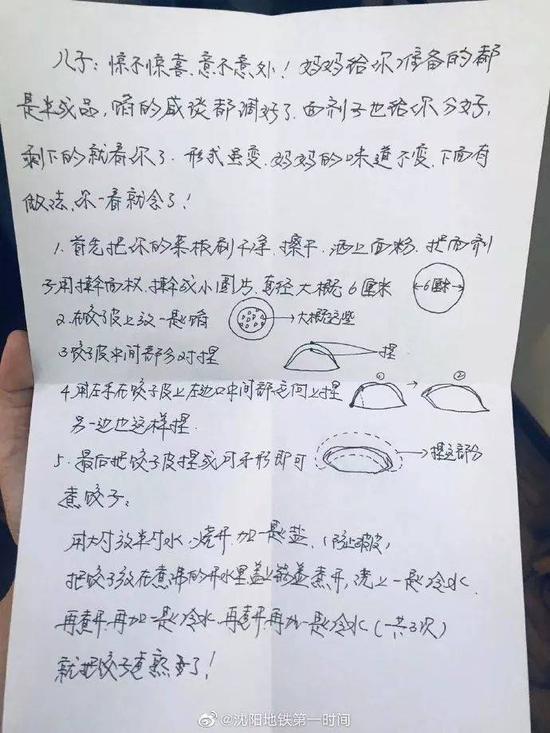 儿子：惊不惊喜、意不意外！妈妈给你准备的都
是半成品，馅的咸淡都调好了，面剂子也给你分好，
剩下的就看你了．形式虽变、妈妈的味道不变、下面有
做法、你一看就会了！
1、首先把你的菜板刷干净、擦平、洒上面粉、把面剂
子用擀面杖、擀成小圆片、直径大概6厘米 ←6厘米→
2、在饺子皮上放一点馅 →大概这些
3、饺子皮中间部分对捏 捏
4、用左手在饺子皮上左边口中间部 向上捏 ① → ②
另一边也这样捏．
5、最后把饺子皮捏成月牙形即可 →捏这部分
煮饺子：
用大勺放半勺水、烧开、加一点盐、（防止破皮）
把饺子放在煮沸的开水里盖上锅盖煮开，浇上一点冷水．
再煮开再加一点冷水、再煮开再加一点冷水（共3次）
就把饺子煮熟了！
@沈阳地铁第一时间